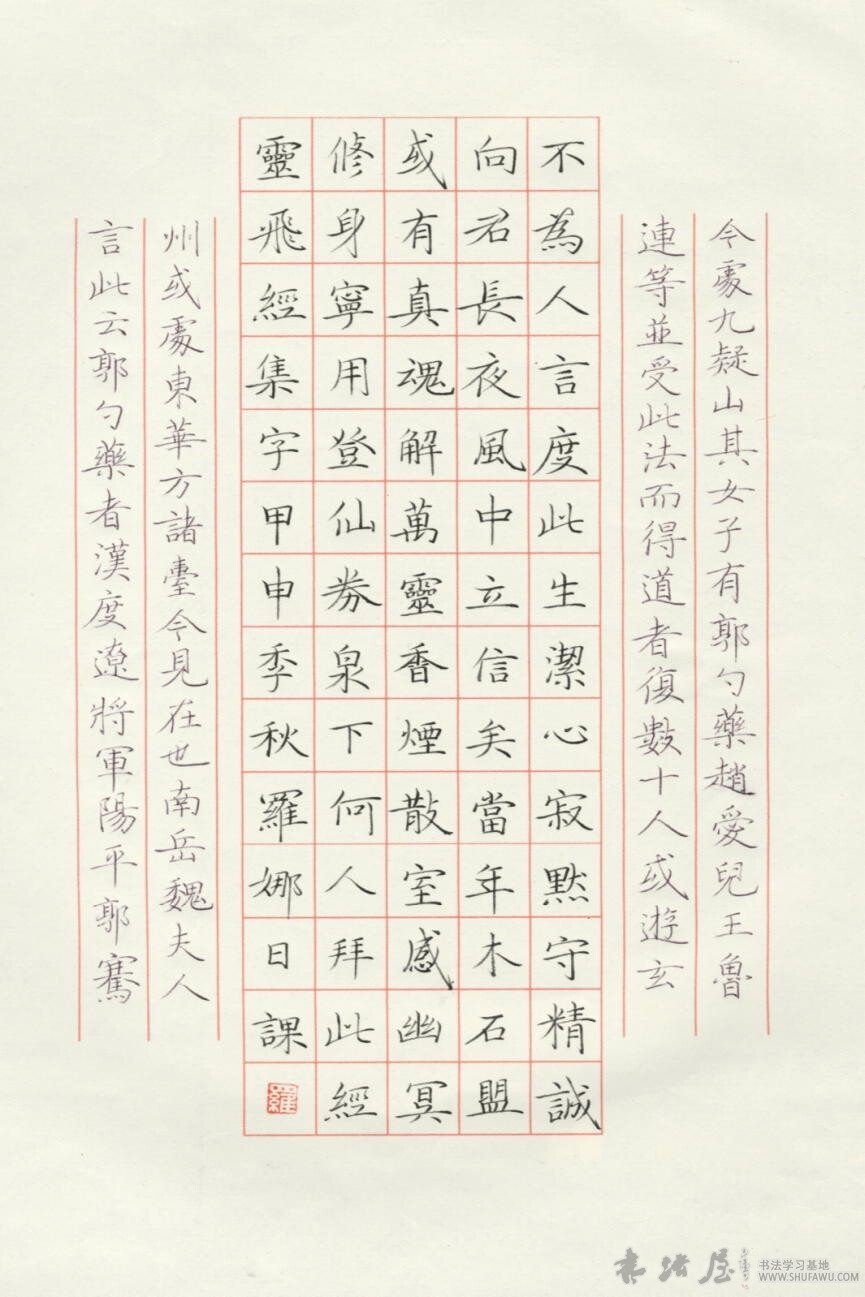 今處九疑山其女子有郭勺藥趙愛兒王魯
連等並受此法而得道者復數十人或遊玄
不為人言度此生潔心寂默守精誠
向君長夜風中立信矣當年木石盟
或有真魂解萬靈香煙散室感幽冥
修身寧用登仙券泉下何人拜此經
靈飛經集字甲申季秋羅娜日課
羅
州或處東華方諸臺今見在也南岳魏夫人
言此云郭勺藥者漢度遼將軍陽平郭騫
书法屋
书法学习基地
WWW.SHUFAWU.COM